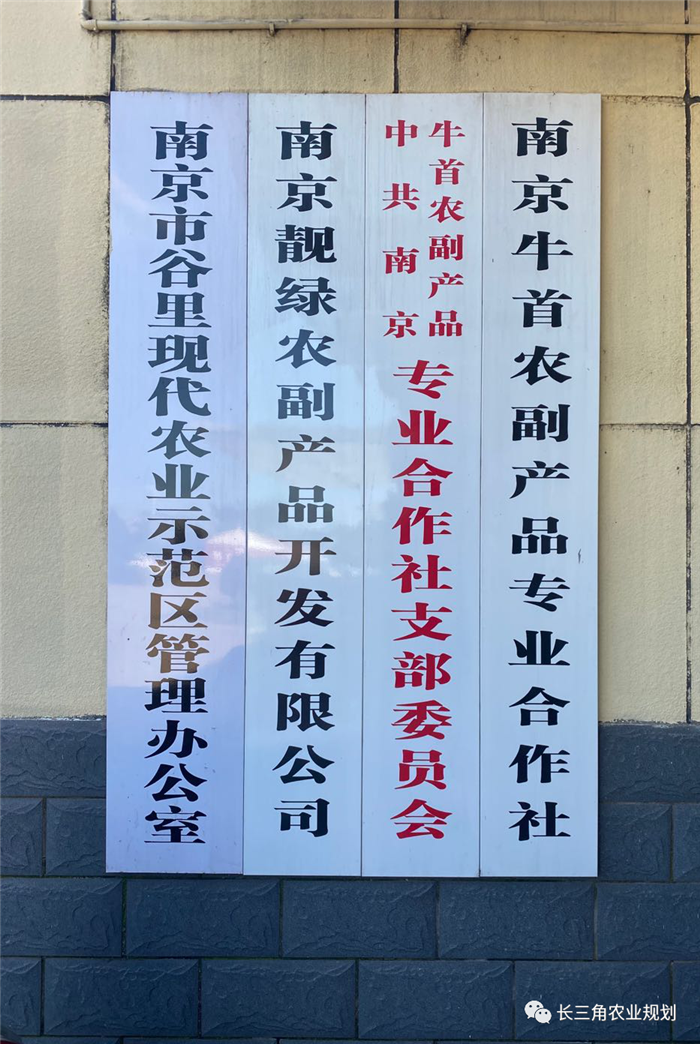 南京市谷里现代农业示范区管理办公室
南京靓绿农副产品开发有限公司
中共南京
牛首农副产品
专业合作社支部委员会
南京牛首农副产品专业合作社
长三角农业规划